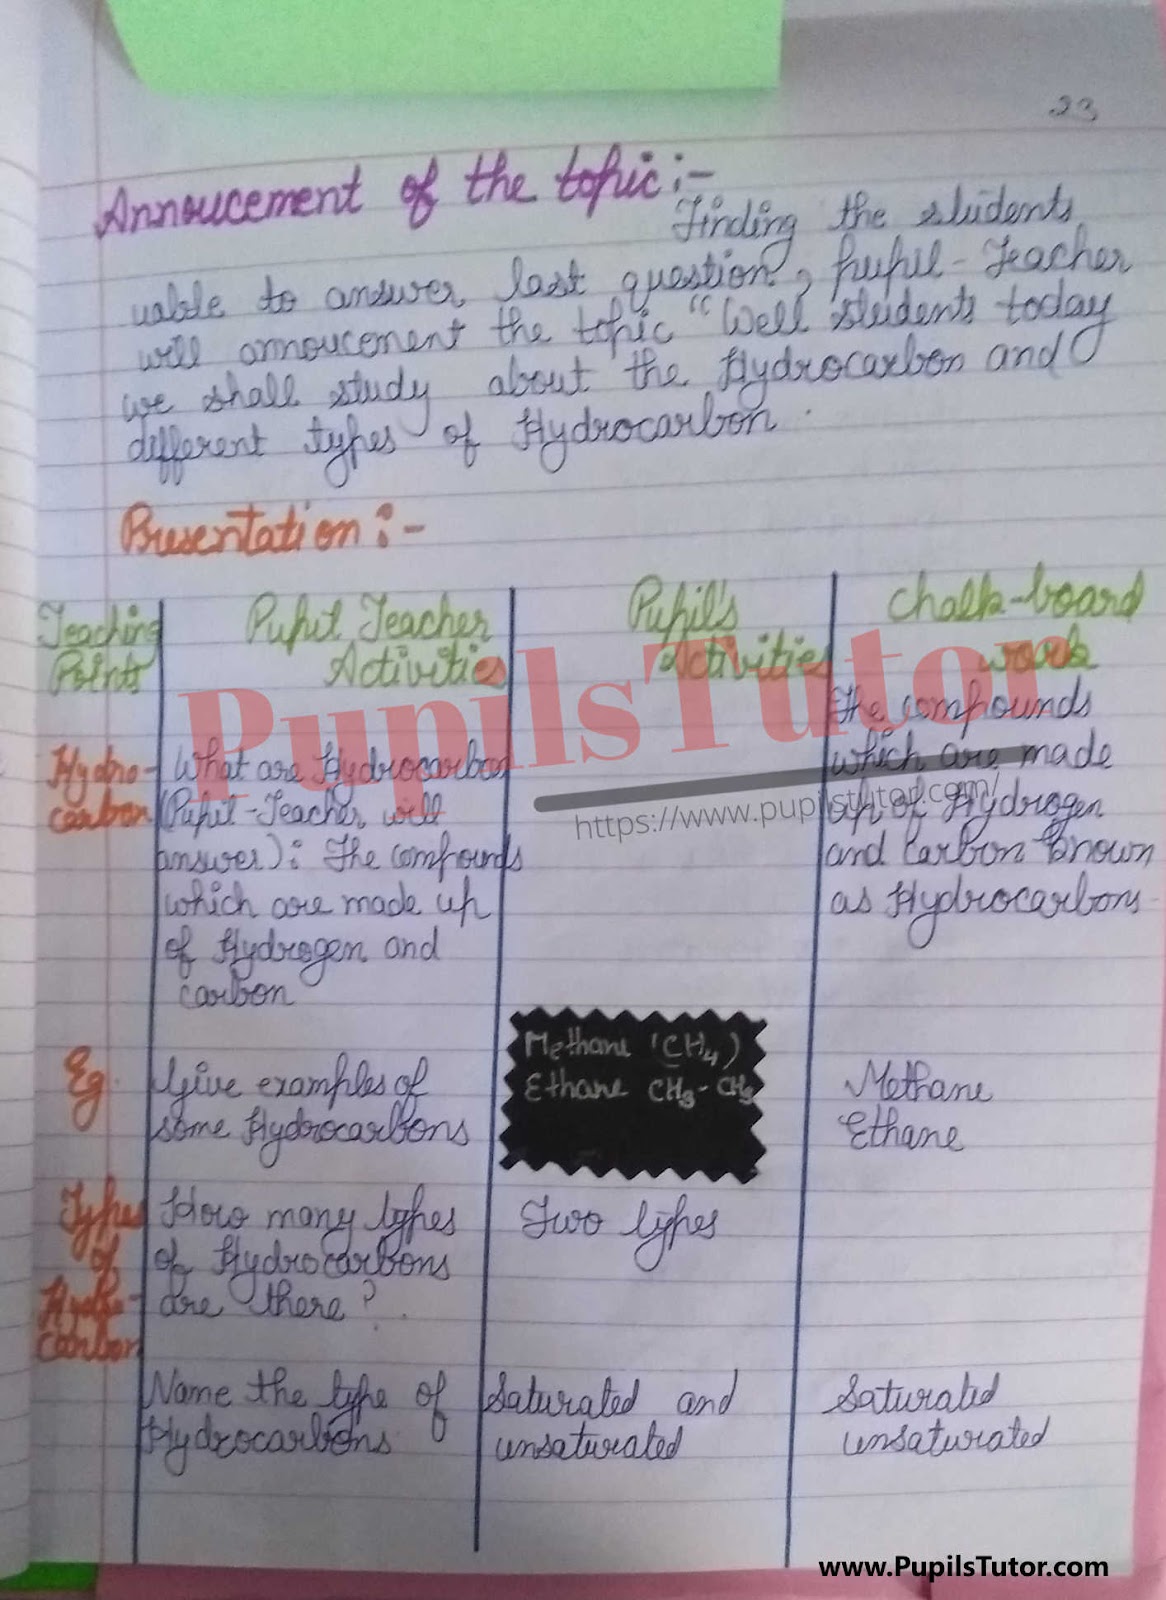 23
Annoucement of the topic :-
Finding the students
uable to answer last question, pupil-Teacher
will annoucement the topic "Well students today
we shall study about the Hydrocarbon and
different types of Hydrocarbon.
Presentation :-
Teaching
Points
Pupil Teacher
Activities
Pupil's
Activities
Chalk-board
work
Hydro-
carbon
What are Hydrocarbon
(Pupil-Teacher will
answer): The compounds
which are made up
of Hydrogen and
carbon
The compounds
which are made
up of Hydrogen
and Carbon known
as Hydrocarbons.
Eg.
Give examples of
some Hydrocarbons
Methane (CH4)
Ethane CH3-CH3
Methane
Ethane
Types
of
Hydro-
carbon
How many types
of Hydrocarbons
are there?
Two types
Name the type of
Hydrocarbons
Saturated and
unsaturated
Saturated
unsaturated
PupilsTutor
https://www.pupilstutor.com/
www.PupilsTutor.com